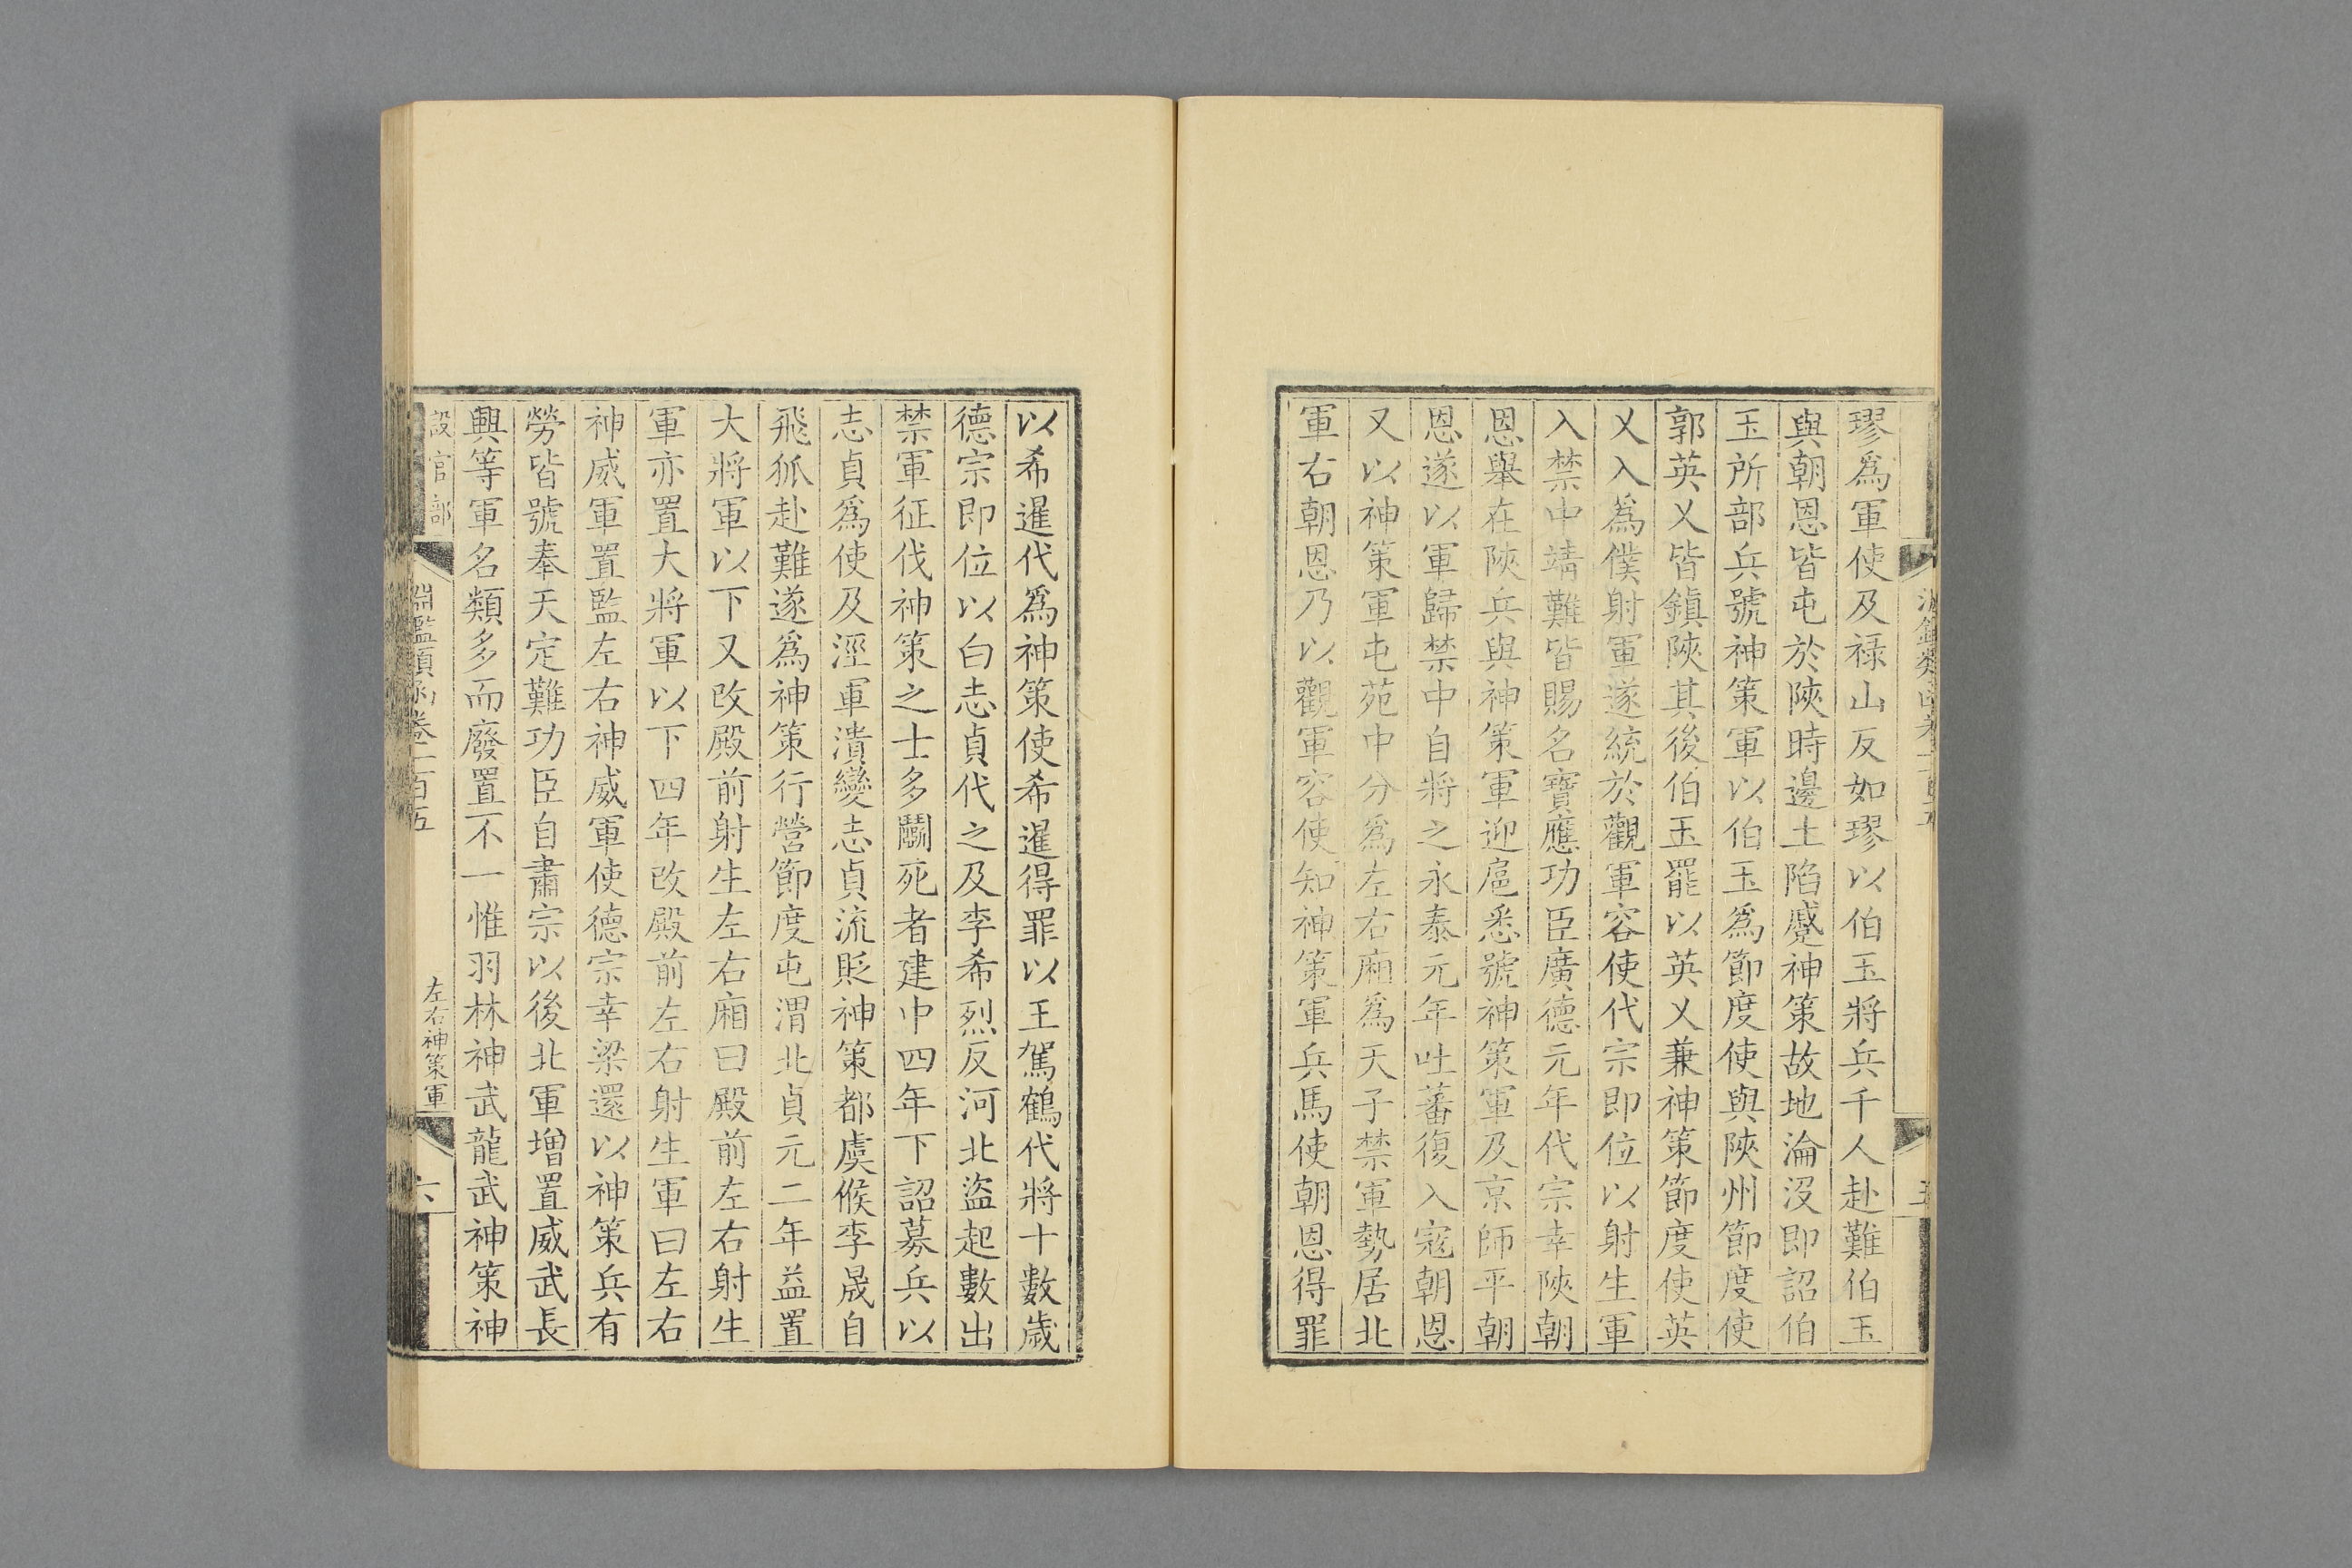 璆爲軍使及禄山反如璆以伯玉將兵千人赴難伯玉
與朝恩皆屯於陝時邊土陷蹙神策故地淪沒即詔伯
玉所部兵號神策軍以伯玉爲節度使與陝州節度使
郭英乂皆鎮陝其後伯玉罷以英乂兼神策節度使英
乂入爲僕射軍遂統於觀軍容使代宗即位以射生軍
入禁中靖難皆賜名寶應功臣廣德元年代宗幸陝朝
恩舉在陝兵與神策軍迎扈悉號神策軍及京師平朝
恩遂以軍歸禁中自將之永泰元年吐蕃復入寇朝恩
又以神策軍屯苑中分爲左右廂爲天子禁軍勢居北
軍右朝恩乃以觀軍容使知神策軍兵馬使朝恩得罪
以希暹代爲神策使希暹得罪以王駕鶴代將十數歲
德宗即位以白志貞代之及李希烈反河北盜起數出
禁軍征伐神策之士多鬬死者建中四年下詔募兵以
志貞爲使及涇軍潰變志貞流貶神策都虞候李晟自
飛狐赴難遂爲神策行營節度屯渭北貞元二年益置
大將軍以下又改殿前射生左右廂曰殿前左右射生
軍亦置大將軍以下四年改殿前左右射生軍曰左右
神威軍置監左右神威軍使德宗幸梁還以神策兵有
勞皆號奉天定難功臣自肅宗以後北軍增置威武長
興等軍名類多而廢置不一惟羽林神武龍武神策神
設官部
淵鑑類函卷一百五
左右神策軍
六